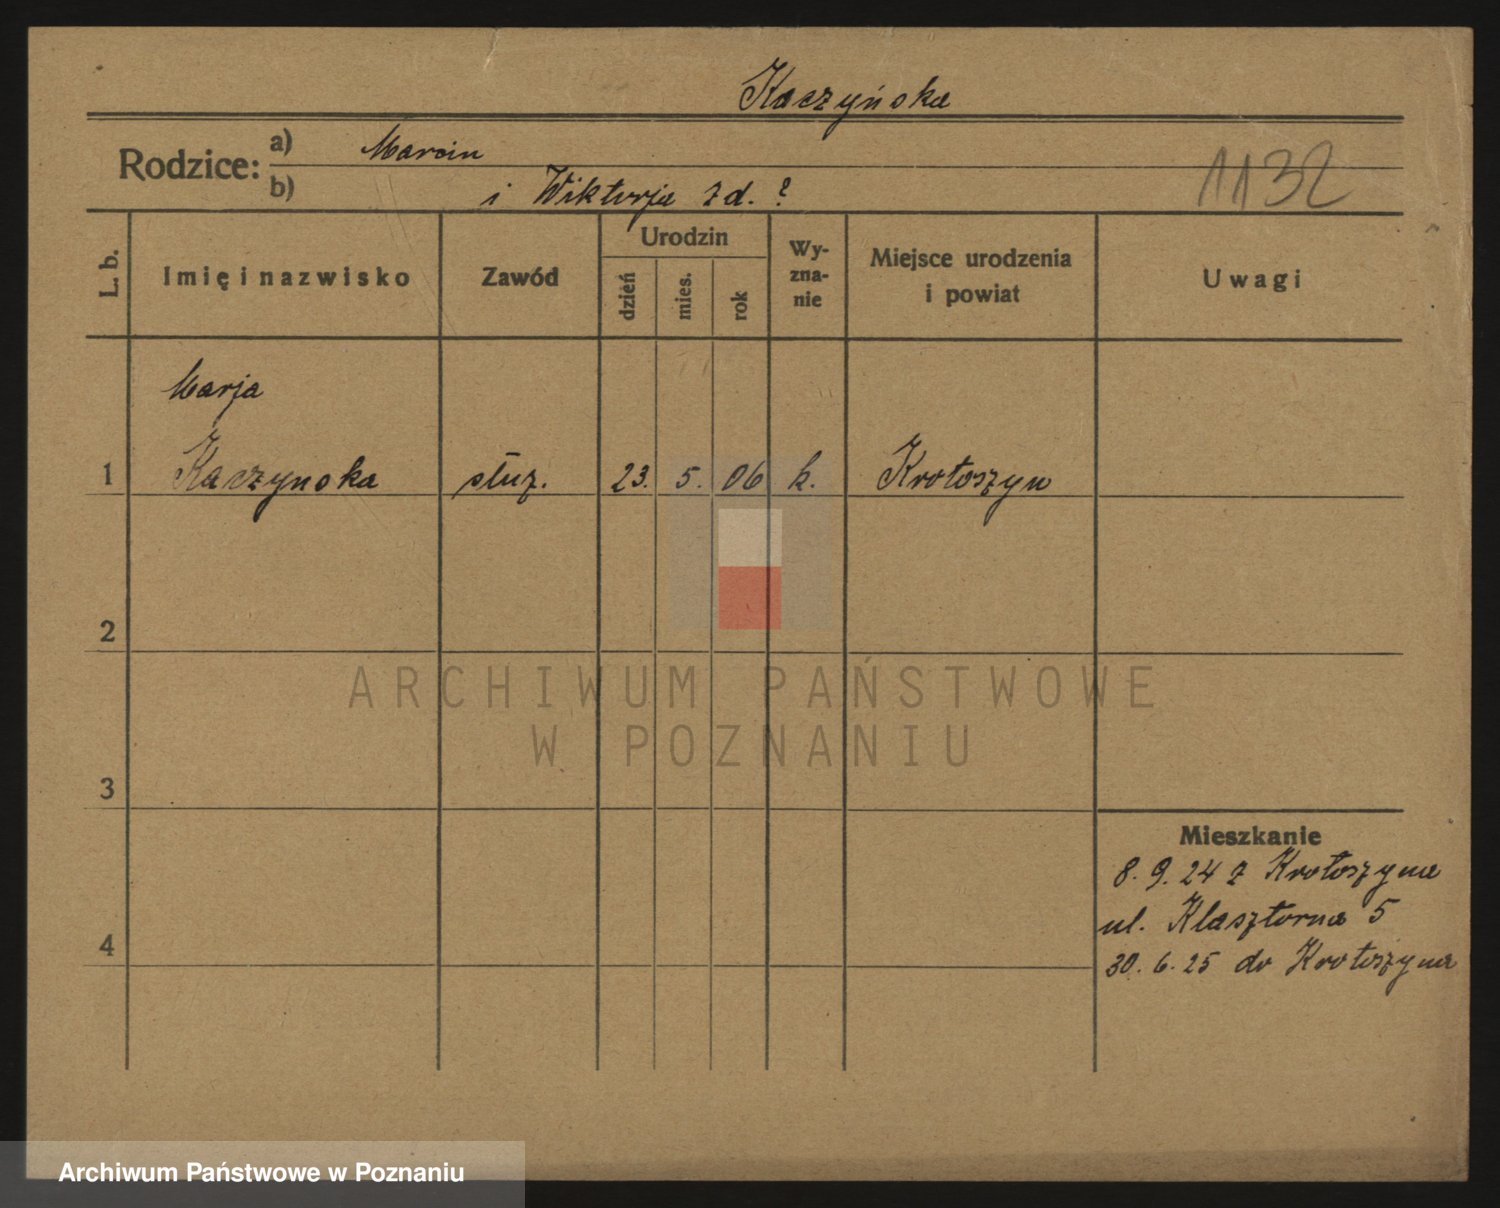 Kaczyńska
Rodzice: a) Marcin
b) i Wiktorja z d. ?
1132
L. b.
Imię i nazwisko
Zawód
Urodzin
dzień
mies.
rok
Wy-
zna-
nie
Miejsce urodzenia
i powiat
Uwagi
Marja
1 Kaczynska służ. 23. 5. 06 k. Krotoszyn
2
ARCHIWUM PAŃSTWOWE
W POZNANIU
3
Mieszkanie
8. 9. 24 z Krotoszyna
ul. Klasztorna 5
4
30. 6. 25 do Krotoszyna
Archiwum Państwowe w Poznaniu